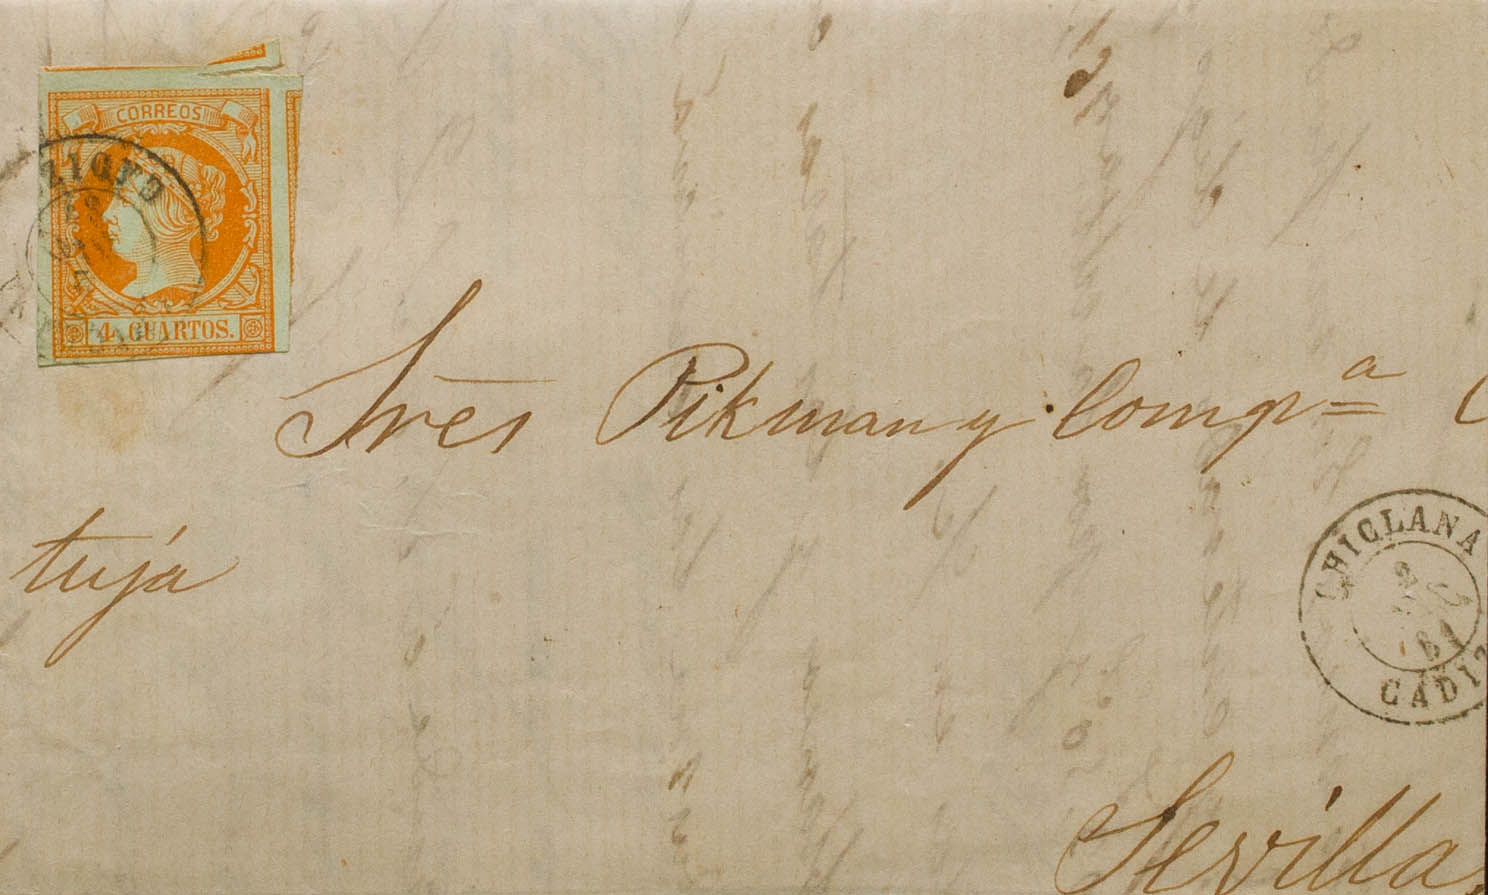 CORREOS
CADIZ
4 CUARTOS.
Sres Pikman y Compª C
tuja
CHICLANA
61
CADIZ
Sevilla